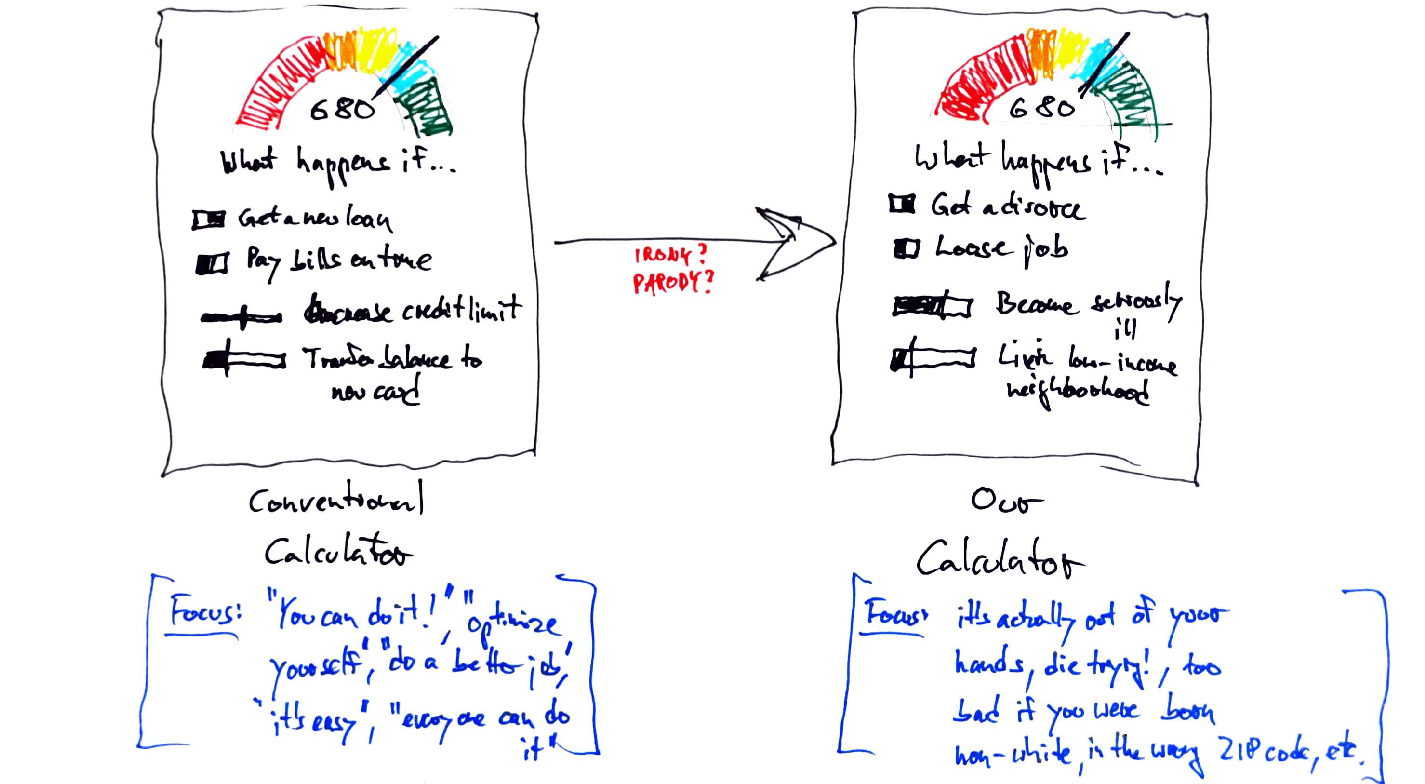 680
What happens if...
Get a new loan
Pay bills on time
credit limit
Transfer balance to
new card
Conventional
Calculator
Focus: "You can do it!", "optimize
yourself", "do a better job,"
"it's easy", "everyone can do
it"
IRONY?
PARODY?
680
What happens if...
Get a divorce
Loose job
Become seriously
ill
Live in low-income
neighborhood
Our
Calculator
Focus: it's actually out of your
hands, die trying!, too
bad if you were born
non-white, in the wrong ZIP code, etc.